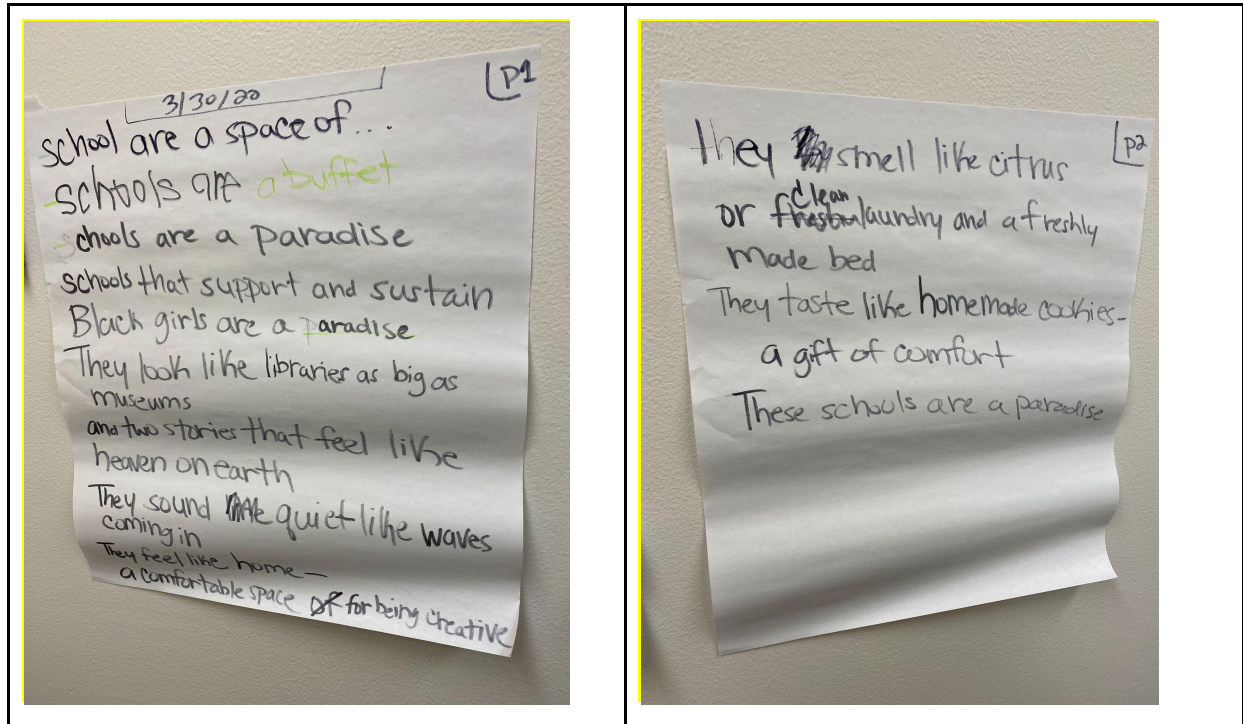 3/30/20
P1
school are a space of...
schools are a buffet
schools are a paradise
schools that support and sustain
Black girls are a paradise
They look like libraries as big as
museums
and two stories that feel like
heaven on earth
They sound quiet like waves
coming in
They feel like home—
a comfortable space for being creative
P2
They smell like citrus
or clean laundry and a freshly
made bed
They taste like homemade cookies-
a gift of comfort
These schools are a paradise